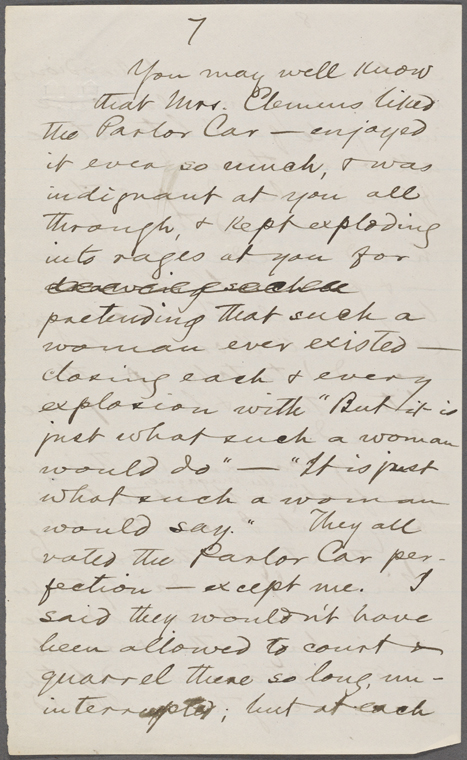 7
You may well know
that Mrs. Clemens liked
the Parlor Car — enjoyed
it ever so much, & was
indignant at you all
through, & kept exploding
into rages at you for
pretending that such a
woman ever existed —
closing each & every
explosion with "But it is
just what such a woman
would do" — "It is just
what such a woman
would say." They all
voted the Parlor Car per-
fection — except me. I
said they wouldn't have
been allowed to court &
quarrel there so long, un-
interrupted; but at each